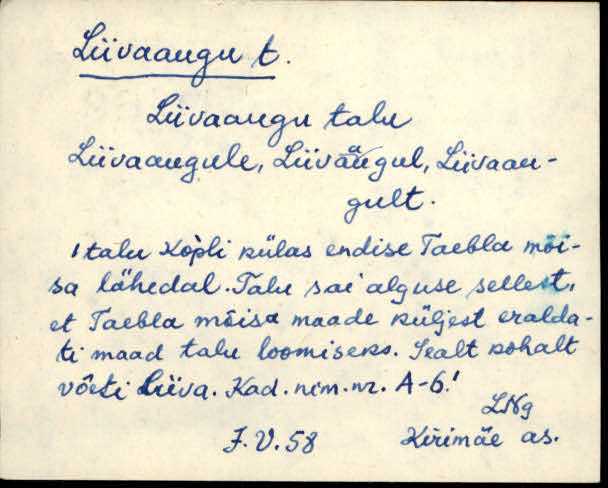 Liivaaugu t.
Liivaaugu talu
Liivaaugule, Liivaaugul, Liivaau-
gult.
'talu Kopli külas endise Taebla mõi-
sa lähedal. Talu sai alguse sellest,
et Taebla mõisa maade küljest eralda-
ti maad talu loomiseks. Sealt kohalt
võeti liiva. Kad. nim. nr. A-6.'
LNg
J.V.58 Kirimäe as.